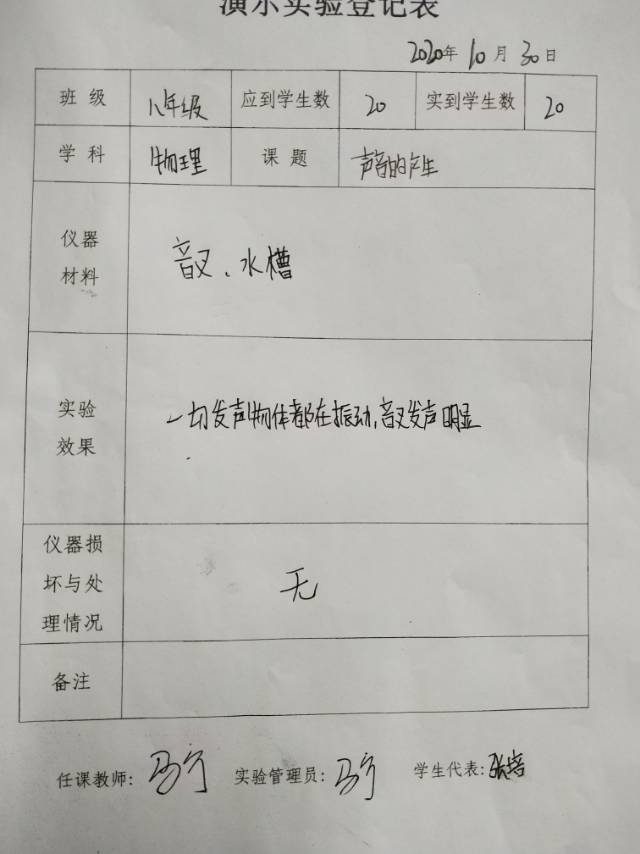 演示实验登记表
2020年10月30日
班级 八年级 应到学生数 20 实到学生数 20
学科 物理 课题 声音的产生
仪器
材料
音叉、水槽
实验
效果
一切发声物体都在振动,音叉发声明显
仪器损
坏与处
理情况
无
备注
任课教师: 实验管理员: 学生代表:张培